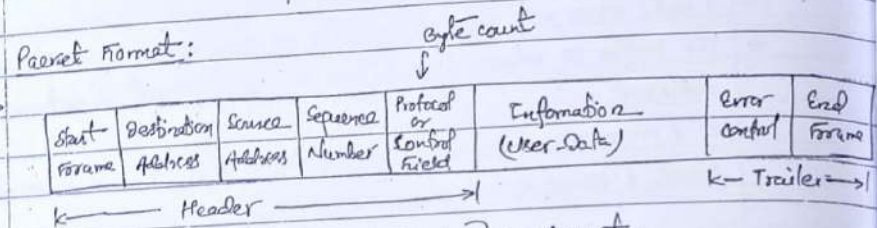 Packet Format:
Byte count
Start Frame
Destination Address
Source Address
Sequence Number
Protocol or Control Field
Information (User-Data)
Error control
End Frame
Header
Trailer